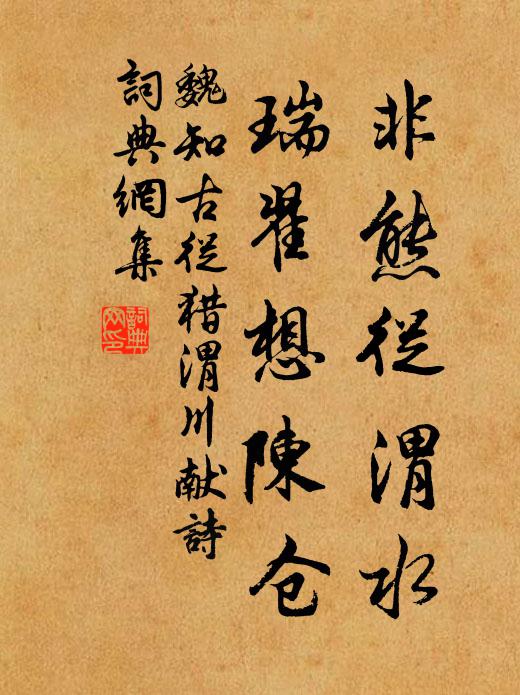 非熊從渭水
瑞翟想陳仓
魏知古從猎渭川献詩
詞典網集
詞典网印